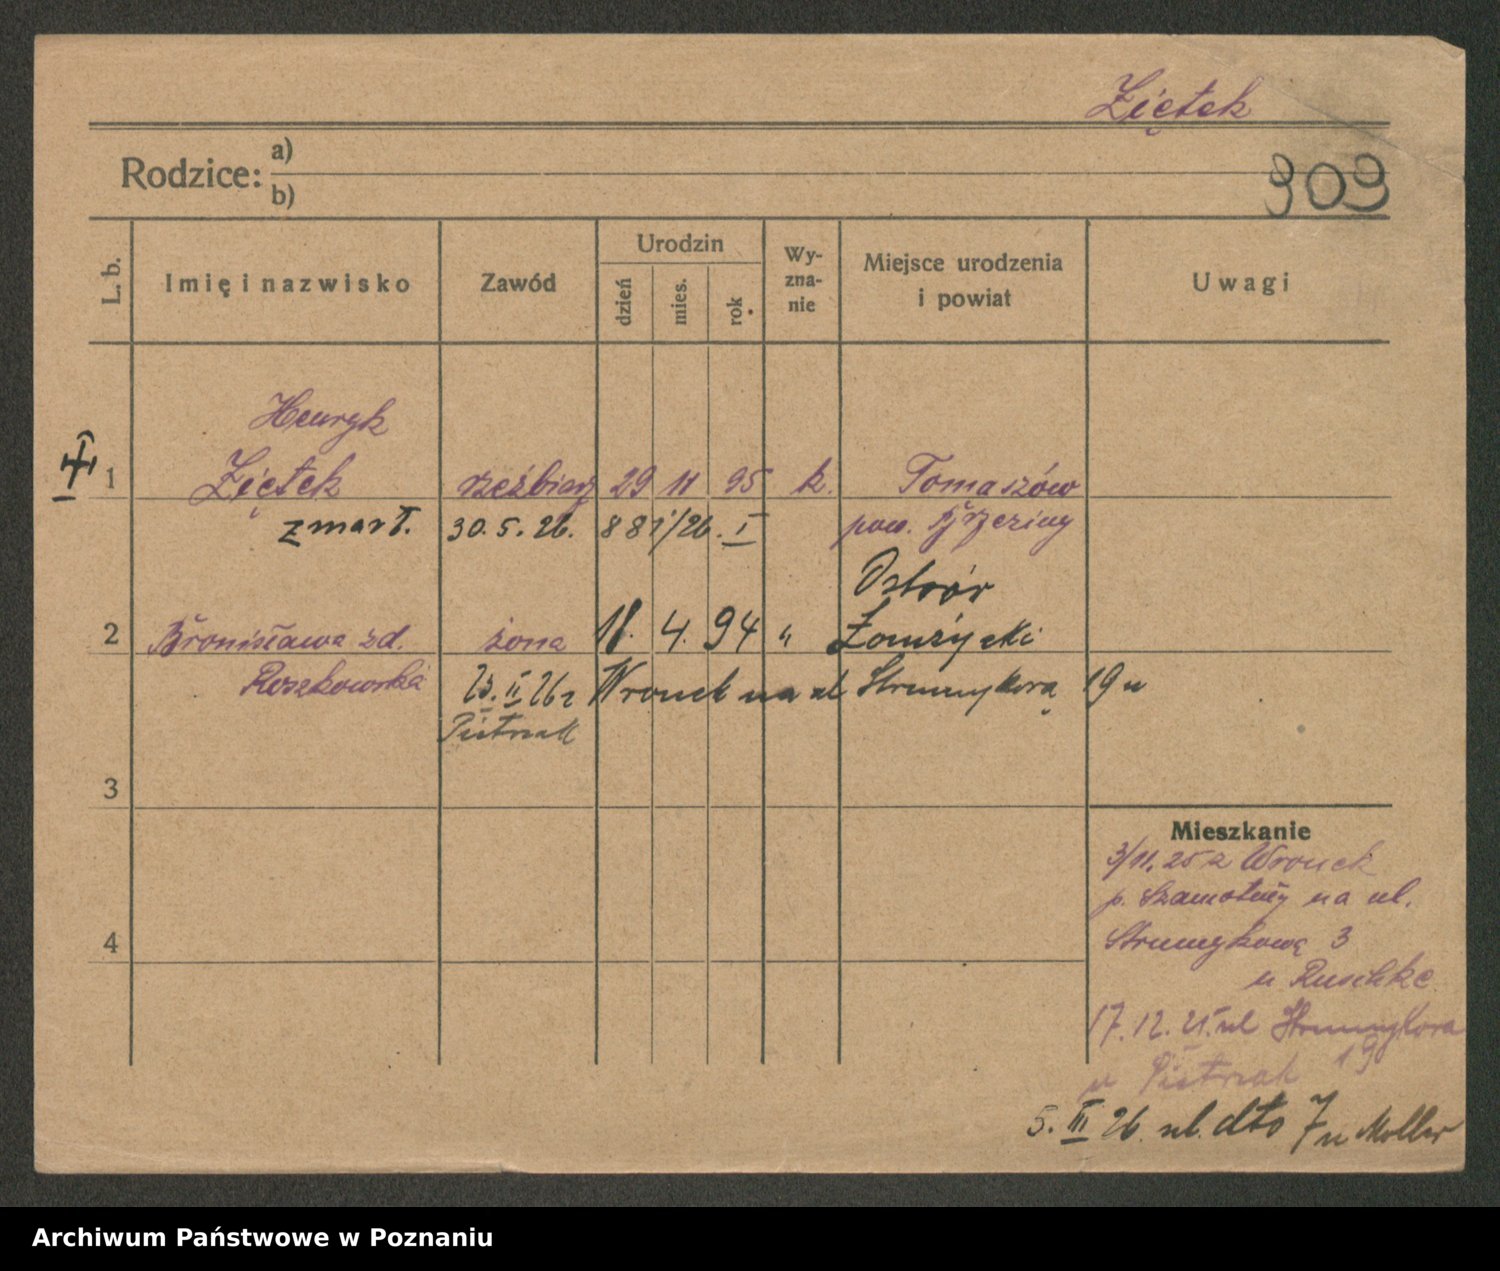 Ziętek
Rodzice: a)
b)
909
L. b.
Imię i nazwisko
Zawód
Urodzin
dzień
mies.
rok
Wy-
zna-
nie
Miejsce urodzenia
i powiat
Uwagi
Henryk
1 Ziętek rzeźbiarz 29 11 95 k. Tomaszów
zmarł. 30.5.26. 881/26. I pow. Brzeziny
Ostrór
2 Bronisława zd. żona 18. 4. 94 " Łomżycki
Roszkowska 23. II 26 z Wronek na ul Strumykową 19 u
Pietrzak
3
4
Mieszkanie
3/11. 25 z Wronek
p. Szamotuły na ul.
Strumykową 3
u Ruschke
17. 12. 25. ul Strumykowa
19
u Pietrzak
5. III 26. ul. dto 7 u Moller
Archiwum Państwowe w Poznaniu